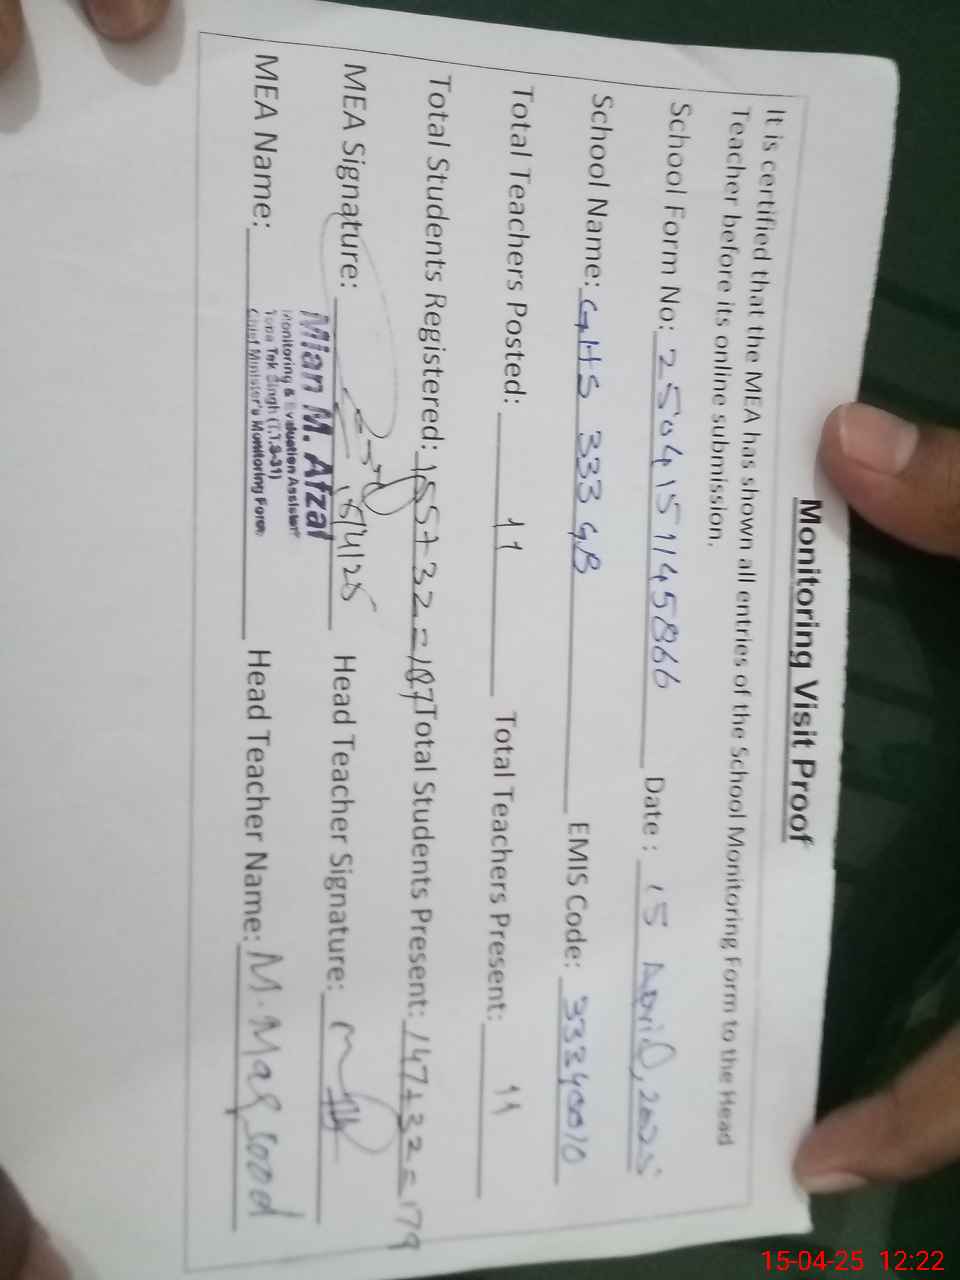 Monitoring Visit Proof
It is certified that the MEA has shown all entries of the School Monitoring Form to the Head
Teacher before its online submission.
School Form No: 2504151145866 Date : 15 April, 2025
School Name: GHS 333 GB EMIS Code: 33340010
Total Teachers Posted: 11 Total Teachers Present: 11
Total Students Registered: 155+32=187 Total Students Present: 147+32=179
MEA Signature: 15/4/25 Head Teacher Signature:
MEA Name: Mian M. Afzal Head Teacher Name: M. Maqsood
Monitoring & Evaluation Assistant
Toba Tek Singh (T.T.S-31)
Chief Minister's Monitoring Force
15-04-25 12:22